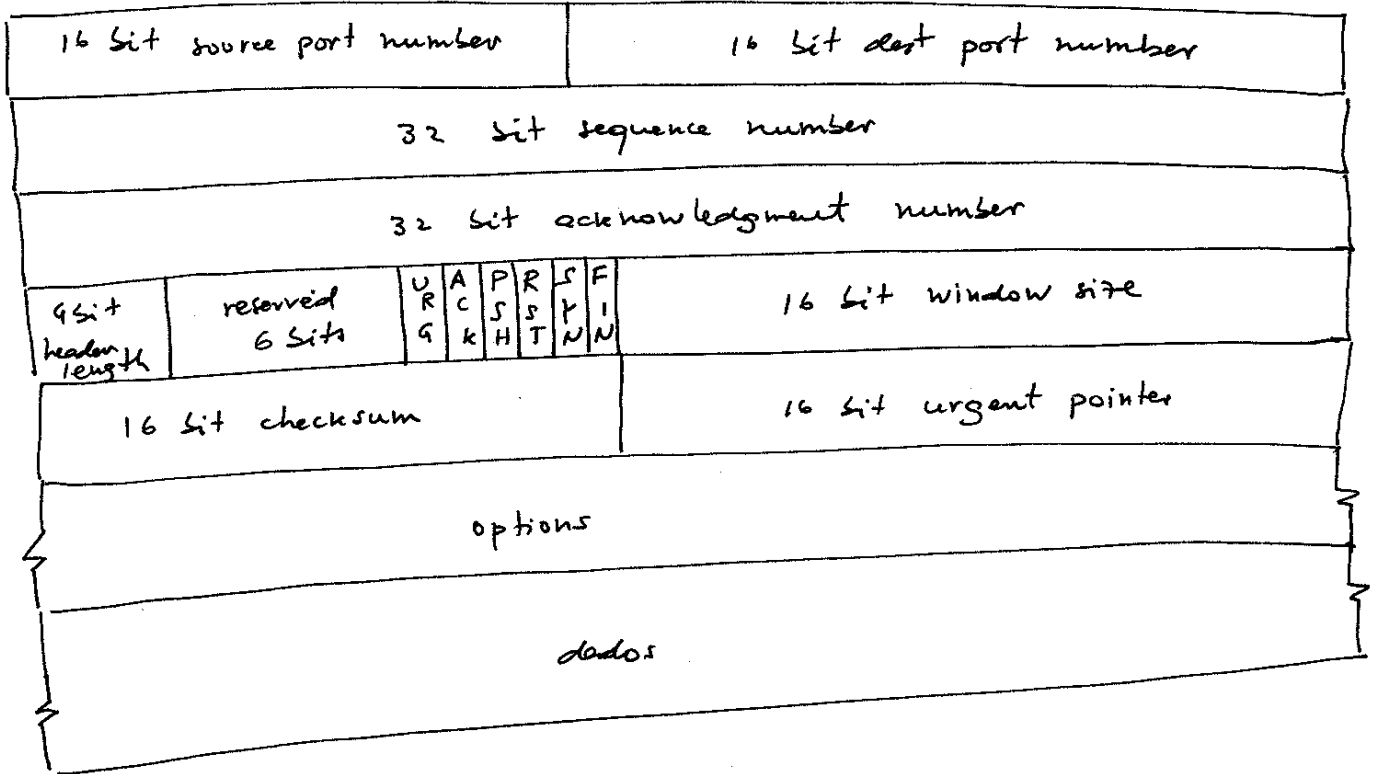 16 bit source port number
16 bit dest port number
32 bit sequence number
32 bit acknowledgment number
4 bit
header
length
reserved
6 bits
URG
ACK
PSH
RST
SYN
FIN
16 bit window size
16 bit checksum
16 bit urgent pointer
options
dados